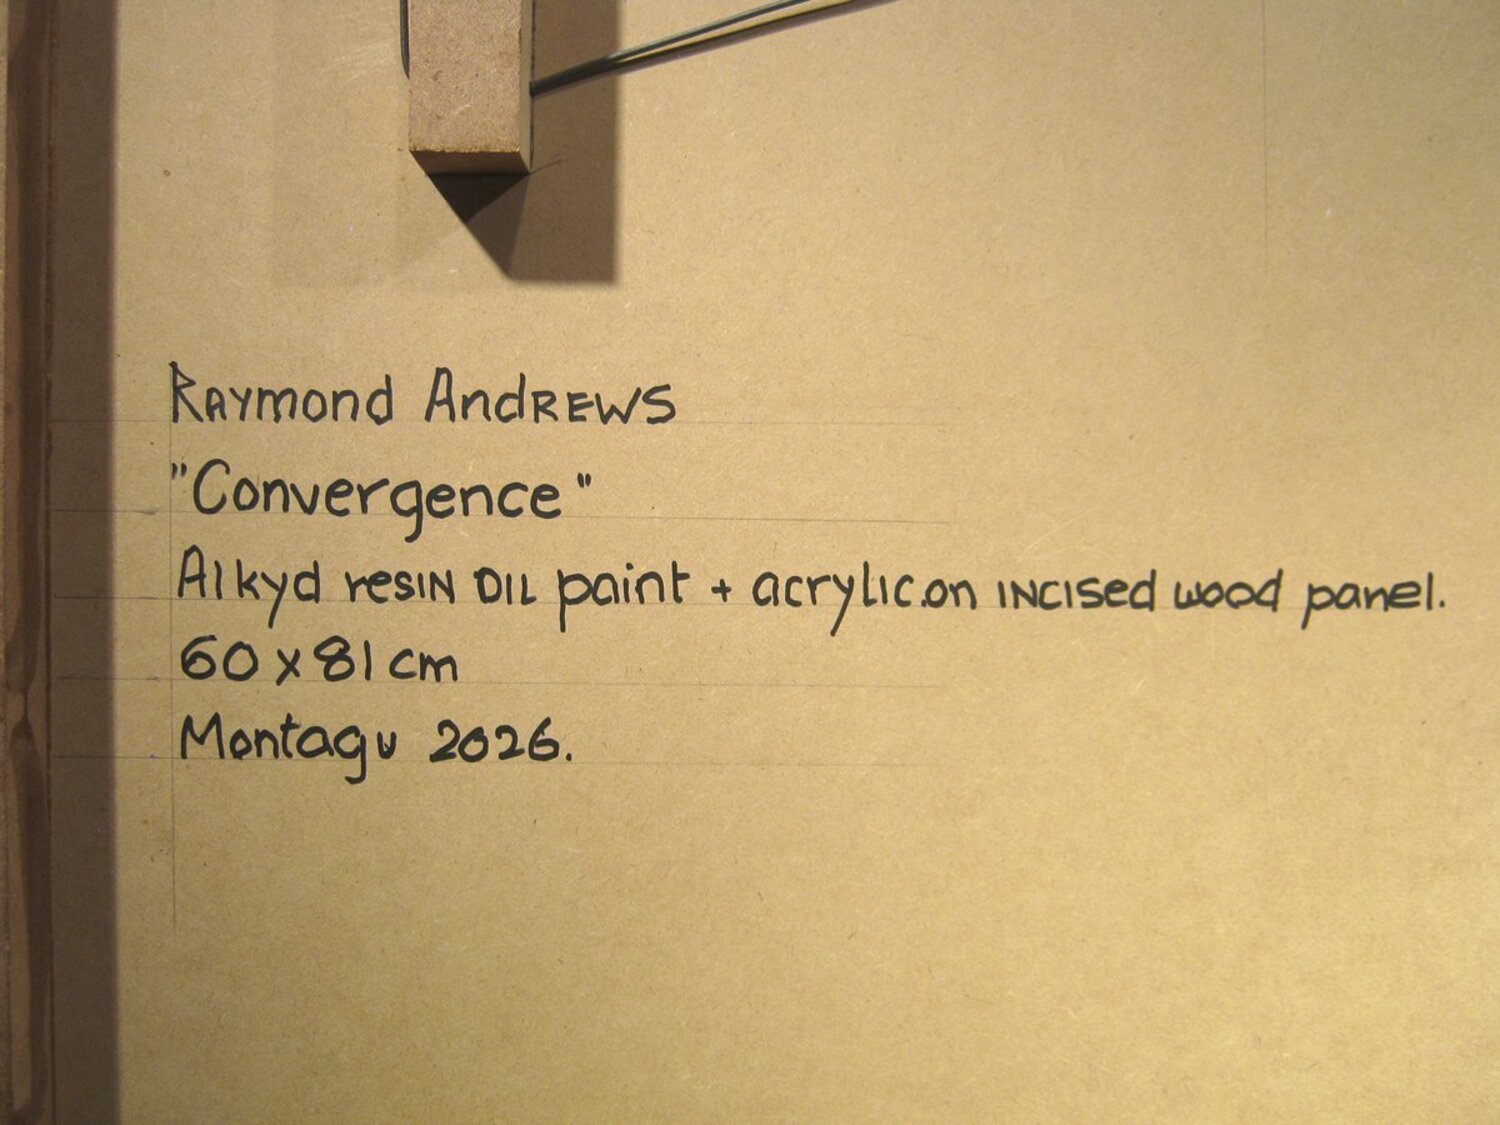 Raymond Andrews
"Convergence"
Alkyd resin oil paint + acrylic.on incised wood panel.
60 x 81 cm
Montagu 2026.